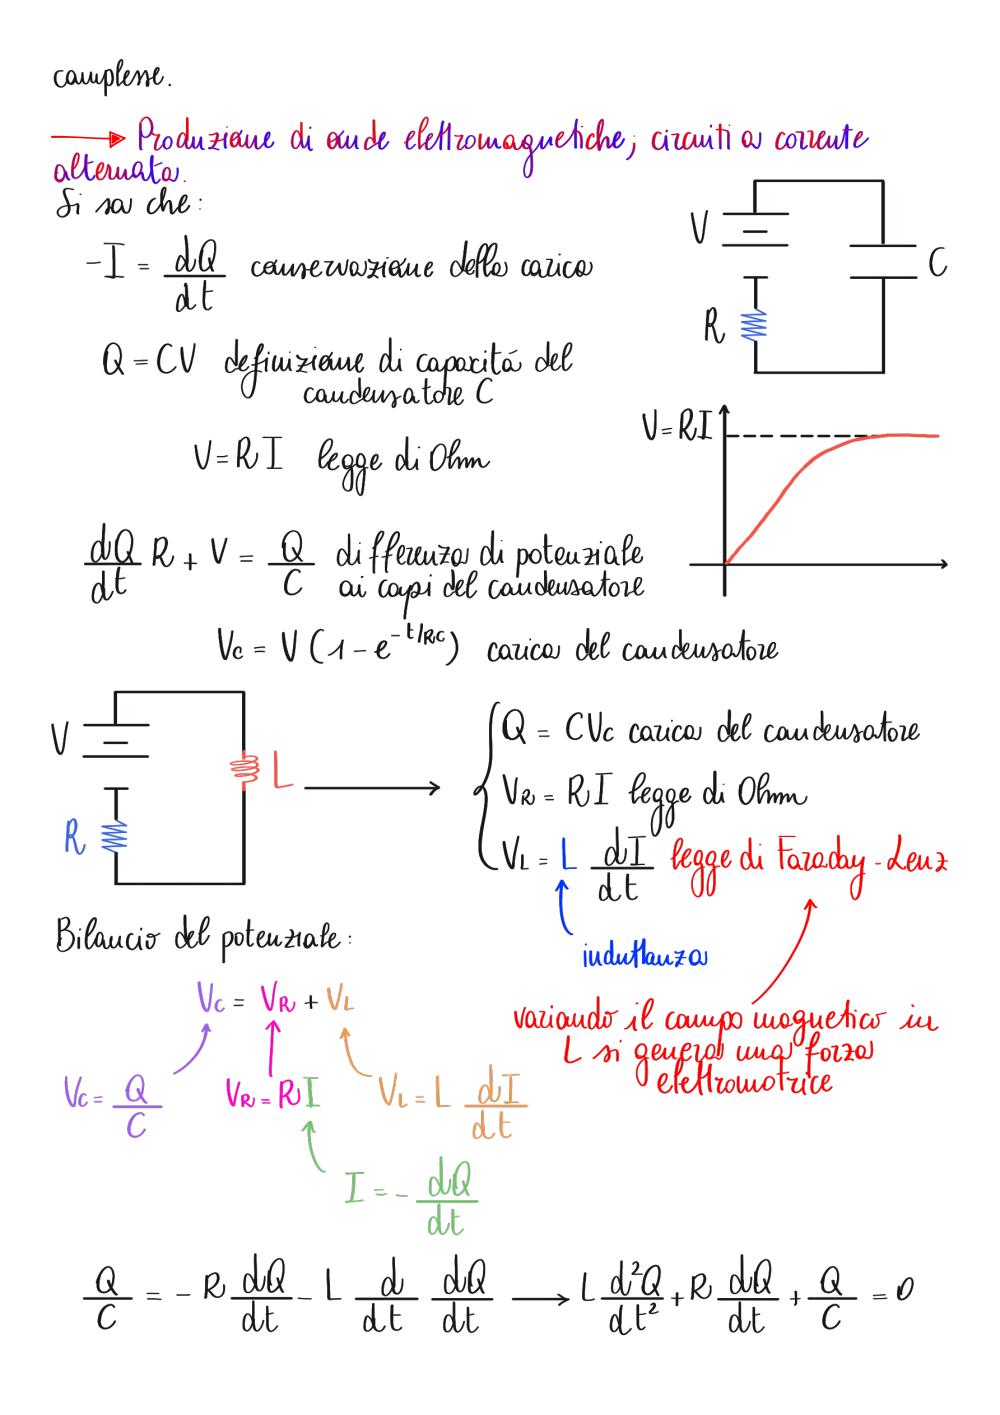 complesse.
→ Produzione di onde elettromagnetiche; circuiti a corrente
alternata.
Si sa che:
-I = dQ/dt conservazione della carica
V
C
R
Q = CV definizione di capacitá del
condensatore C
V=RI
V=RI legge di Ohm
dQ/dt R + V = Q/C differenza di potenziale
ai capi del condensatore
Vc = V (1-e^-t/RC) carica del condensatore
V
L
R
Q = CVc carica del condensatore
VR = RI legge di Ohm
VL = L dI/dt legge di Faraday-Lenz
Bilancio del potenziale:
induttanza
Vc = VR + VL
variando il campo magnetico in
L si genera una forza
elettromotrice
Vc = Q/C
VR = RI
VL = L dI/dt
I = - dQ/dt
Q/C = - R dQ/dt - L d/dt dQ/dt → L d²Q/dt² + R dQ/dt + Q/C = 0